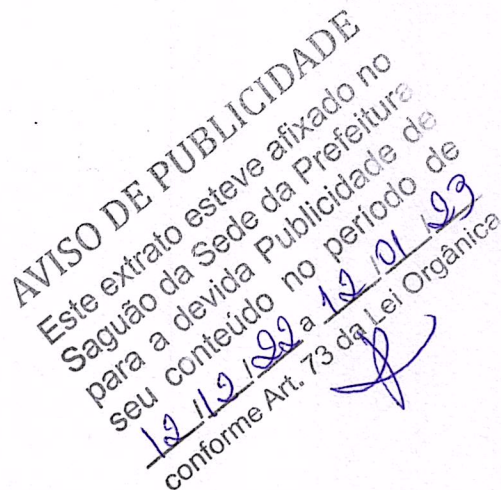 AVISO DE PUBLICIDADE
Este extrato esteve afixado no
Saguão da Sede da Prefeitura
para a devida Publicidade de
seu conteúdo no período de
12/12/22 a 12/01/23
conforme Art. 73 da Lei Orgânica